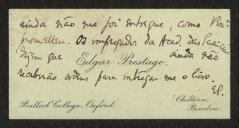 ainda não me foi entregue, como V. Exa
prometteu. Os empregados da Acad. das Sciencias
dizem que
Edgar Prestage.
ainda não
receberão ordens para entregar-me o livro.
EP.
Balliol College, Oxford.
Chiltern,
Bowdon.